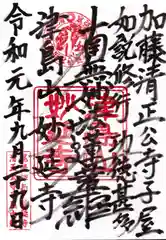 加藤清正公寺子屋
如説修行功徳甚多
南無妙法蓮華経
津島山妙延寺
令和元年九月二十九日